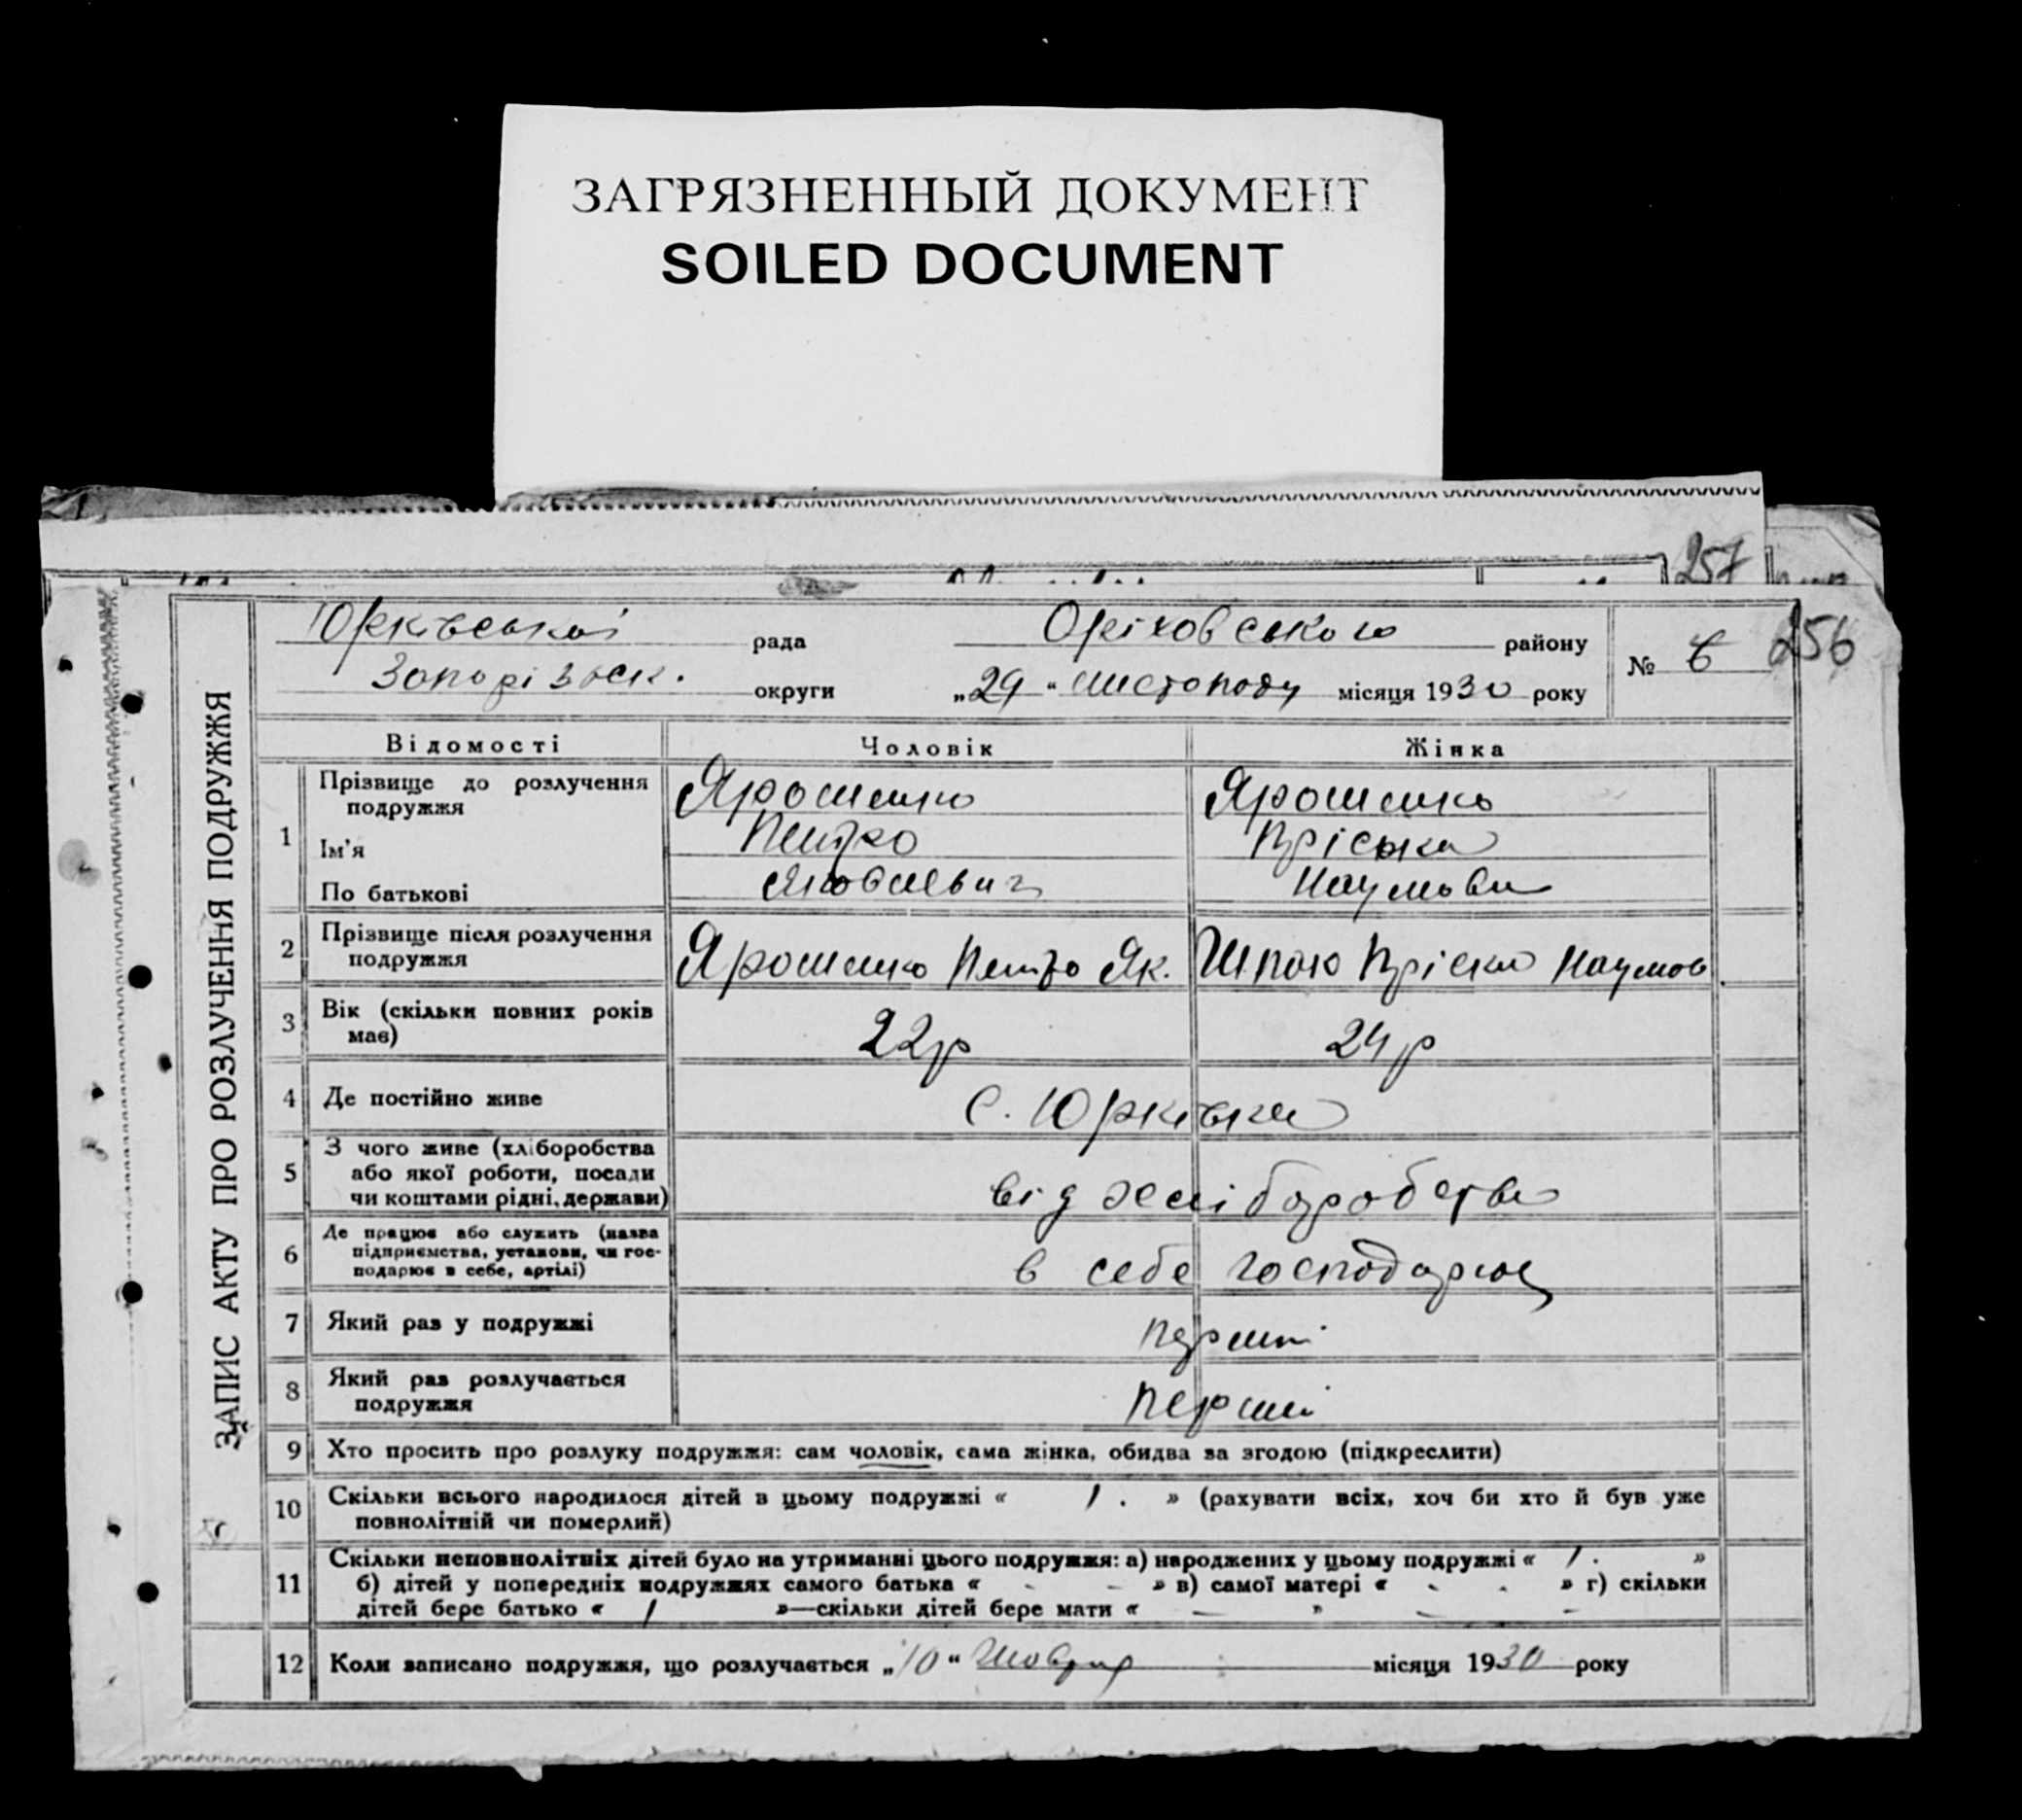 ЗАГРЯЗНЕННЫЙ ДОКУМЕНТ
SOILED DOCUMENT
257
256
ЗАПИС АКТУ ПРО РОЗЛУЧЕННЯ ПОДРУЖЖЯ
Юрківської рада Оріховського району
№ 6
Запорізьк. округи „29“ листопаду місяця 1930 року
Відомості Чоловік Жінка
1 Прізвище до розлучення подружжя Ярошенко Ярошенко
Ім'я Петро Пріська
По батькові Яковлевич Наумовна
2 Прізвище після розлучення подружжя Ярошенко Петро Як. Пріска Наумов
3 Вік (скільки повних років має) 22р 24р
4 Де постійно живе С. Юрківка
5 З чого живе (хліборобства або якої роботи, посади чи коштами рідні, держави) від хліборобства
6 Де працює або служить (назва підприємства, установи, чи господарює в себе, артілі) в себе господарює
7 Який раз у подружжі перший
8 Який раз розлучається подружжя перший
9 Хто просить про розлуку подружжя: сам чоловік, сама жінка, обидва за згодою (підкреслити)
10 Скільки всього народилося дітей в цьому подружжі « 1. » (рахувати всіх, хоч би хто й був уже
повнолітній чи померлий)
11 Скільки неповнолітніх дітей було на утриманні цього подружжя: а) народжених у цьому подружжі « 1. »
б) дітей у попередніх подружжях самого батька « - - » в) самої матері « - - » г) скільки
дітей бере батько « 1 »—скільки дітей бере мати « — » — -
12 Коли записано подружжя, що розлучається „10“ місяця 1930 року